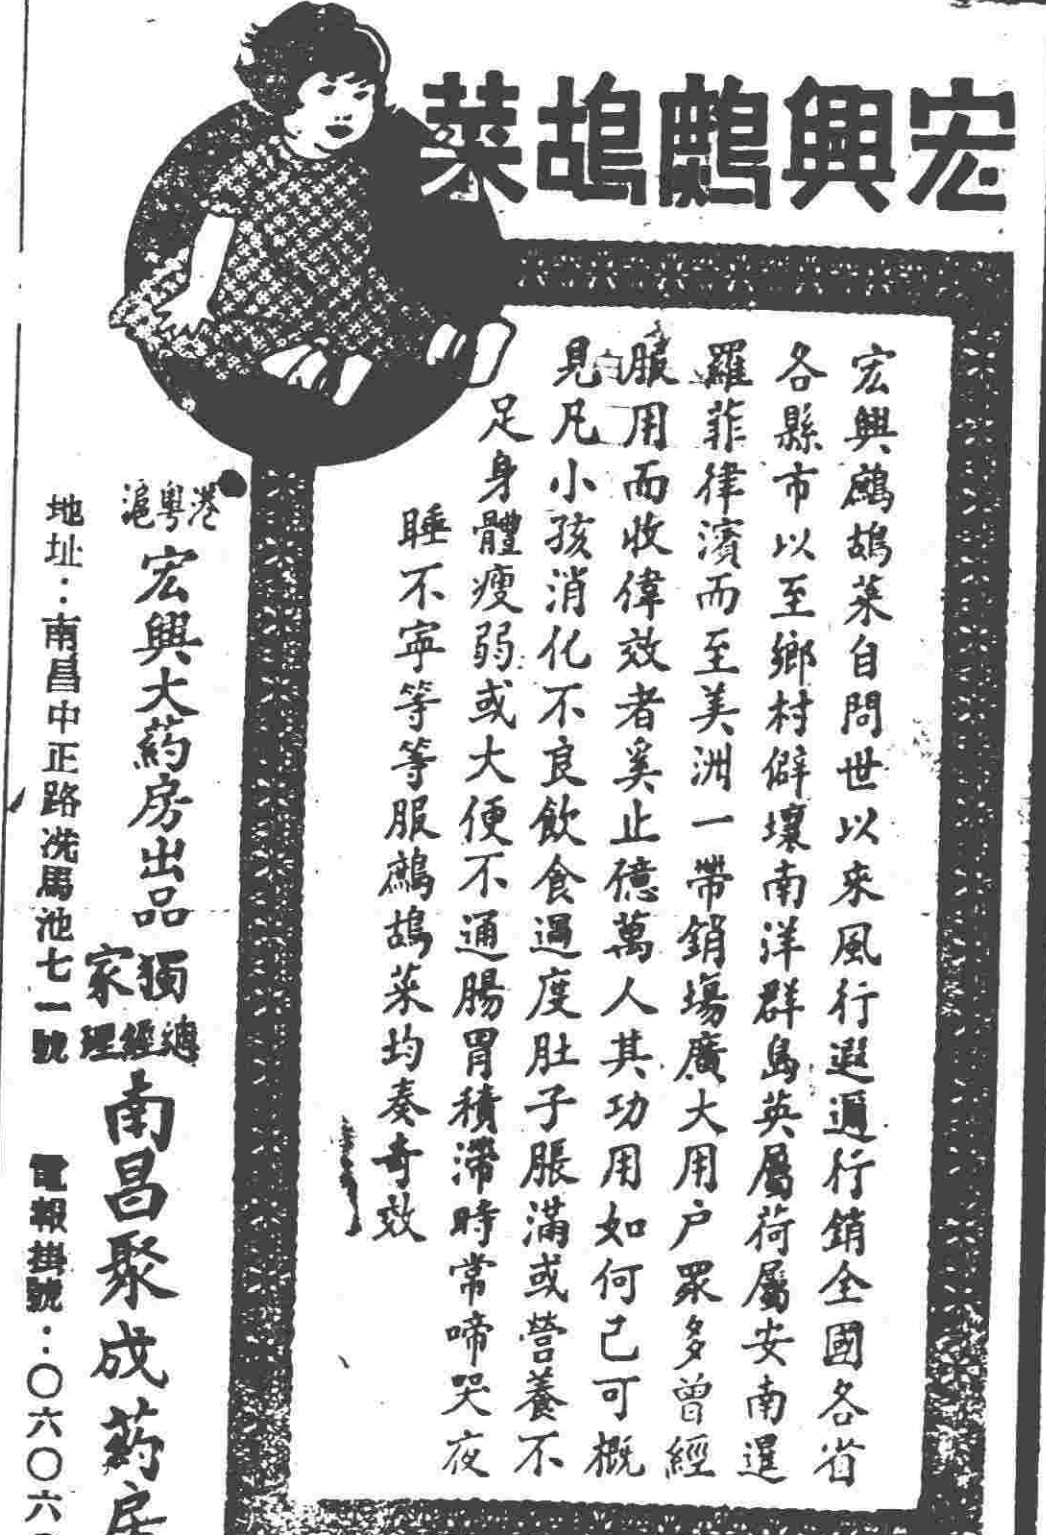 宏興鷓鴣菜
宏興鷓鴣菜自問世以來風行遐邇行銷全國各省
各縣市以至鄉村僻壤南洋群島英屬荷屬安南暹
羅菲律濱而至美洲一帶銷場廣大用户眾多曾經
服用而收偉效者奚止億萬人其功用如何己可概
見凡小孩消化不良飲食過度肚子脹滿或營養不
足身體瘦弱或大便不通腸胃積滯時常啼哭夜
睡不寧等等服鷓鴣菜均奏奇效
港粵滬
宏興大葯房出品
獨家
總經理
南昌聚成葯房
地址：南昌中正路洗馬池七一號
電報掛號：〇六〇六